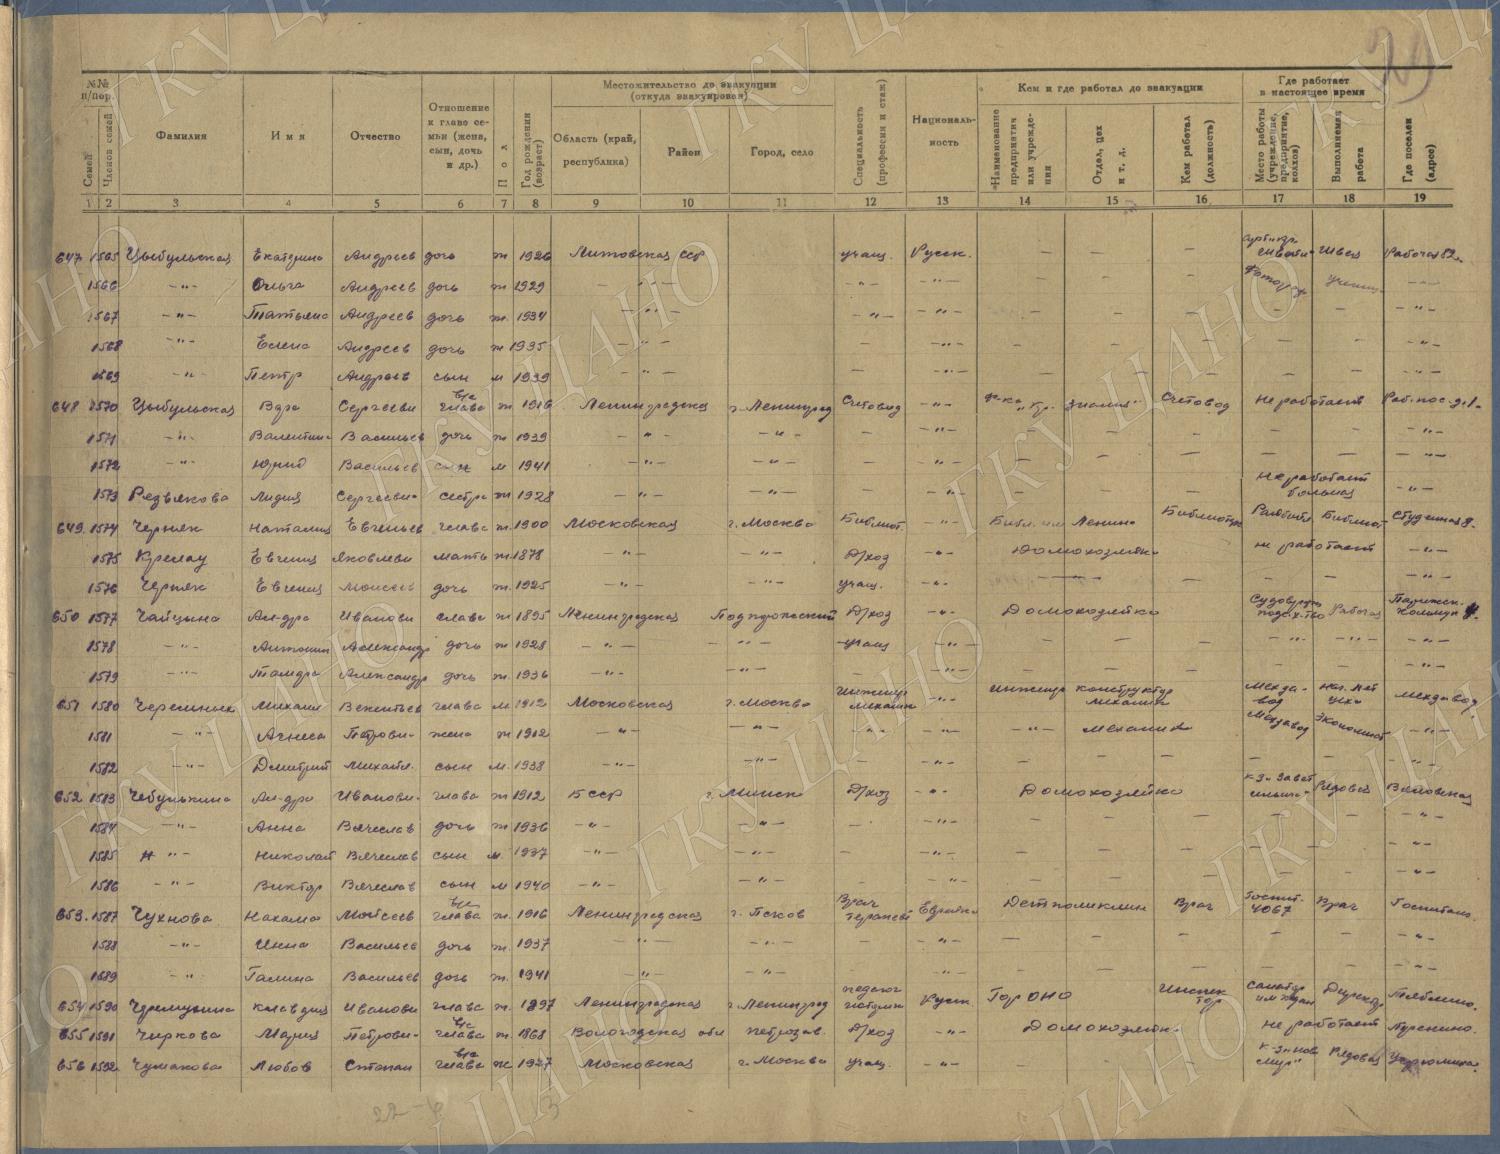 29
№№ п/пор. Местожительство до эвакуции (откуда эвакуирован) Кем и где работал до эвакуации Где работает в настоящее время
Семей Членов семей Фамилия Имя Отчество Отношение к главе семьи (жена, сын, дочь и др.) Пол Год рождения (возраст) Область (край, республика) Район Город, село Специальность (профессия и стаж) Националь-ность Наименование предприятия или учреждения Отдел, цех и т. д. Кем работал (должность) Место работы (учреждение, предприятие, колхоз) Выполняемая работа Где поселен (адрес)
1 2 3 4 5 6 7 8 9 10 11 12 13 14 15 16 17 18 19
647 1565 Цыбульская Екатерина Андреев дочь ж 1926 Литовская ССР учащ. Русск. — — — Швея Рабочая 82
1566 —"— Ольга Андреев дочь ж 1929 —"— —"— —"— — — — —"—
1567 —"— Татьяна Андреев дочь ж. 1934 —"— —"— —"— — — — — — —"—
1568 —"— Елена Андреев дочь ж 1935 —"— — —"— — — — — — —"—
1569 —"— Петр Андреев сын м 1939 —"— — —"— — — — — — —"—
648 1570 Цыбульская Вера Сергеевн в/с глава ж 1916 Ленинградска г. Ленинград Счетовод —"— ф-ка "Кр. знамя" Счетовод не работает Раб. пос. д. 1
1571 —"— Валентин Васильев дочь ж 1939 —"— —"— — —"— — — — — — —"—
1572 —"— Юрий Васильев сын м 1941 —"— —"— — —"— — — — — — —"—
1573 Резвякова Лидия Сергеевн сестра ж 1928 —"— —"— — —"— — — — не работает больная —"—
649. 1574 Черняк Наталия Евгеньев глава ж. 1900 Московская г. Москва Библиот. —"— Библ. им Ленина Библиотек Библиот Студеная 8.
1575 Кремау Евгения Яковлевн мать ж. 1878 —"— —"— Д/хоз —"— Домохозяйка не работает —"—
1576 Черняк Евгения Моисеев дочь ж. 1925 —"— —"— учащ. —"— —"— — — — —"—
650 1577 Чайцына Ал-дра Ивановн глава ж 1895 Ленинградская Подпорожский Д/хоз —"— Домохозяйка Рабочая Парижск. коммун
1578 —"— Антонин Александр дочь ж 1928 —"— —"— учащ —"— — — — —"— —"— —"—
1579 —"— Тамара Александр дочь ж. 1936 —"— —"— — —"— — — — — — —"—
651 1580 Черемных Михаил Векентьев глава м 1912 Московская г. Москва Инженер механик —"— инженер конструктор механик Мехза-вод нач. цеха мехзавод
1581 —"— Агнеса Петровн. жена ж 1912 —"— —"— —"— —"— —"— механик Мехзавод Экономист —"—
1582 Дмитрий Михайл. сын м. 1938 —"— —"— — —"— — — — — — —"—
652 1583 Чебулькина Ал-дра Ивановн. глава ж 1912 БССР г. Минск Д/хоз —"— Домохозяйка Рядовая Вяловская
1584 —"— Анна Вячеслав дочь ж 1936 —"— —"— — —"— — — — — — —"—
1585 —"— Николай Вячеслав сын м. 1937 —"— —"— — —"— — — — — — —"—
1586 —"— Виктор Вячеслав сын м 1940 —"— —"— — —"— — — — — — —"—
653. 1587 Чухнова Нахама Мойсеев в/с глава ж. 1916 Ленинградская г. Псков Врач терапевт Еврейка Детполиклин Врач Госпит. 4067 Врач Госпиталь
1588 —"— Инна Васильев дочь ж. 1937 —"— —"— — —"— — — — — — —"—
1589 —"— Галина Васильев дочь ж. 1941 —"— —"— — —"— — — — — — —"—
654 1590 Черемухина Клавдия Ивановн глава ж. 1897 Ленинградская г. Ленинград педагог Русск ГорОНО Инспек тор Директор
655 1591 Чиркова Мария Петровн- в/с глава ж. 1868 Вологодская обл Петрозав. Д/хоз —"— Домохозяйка не работает
656 1592 Чумакова Любов Степан в/с глава ж 1927 Московская г. Москва учащ. —"— — — — Рядовая
22-4 3
ГКУ ЦАНО